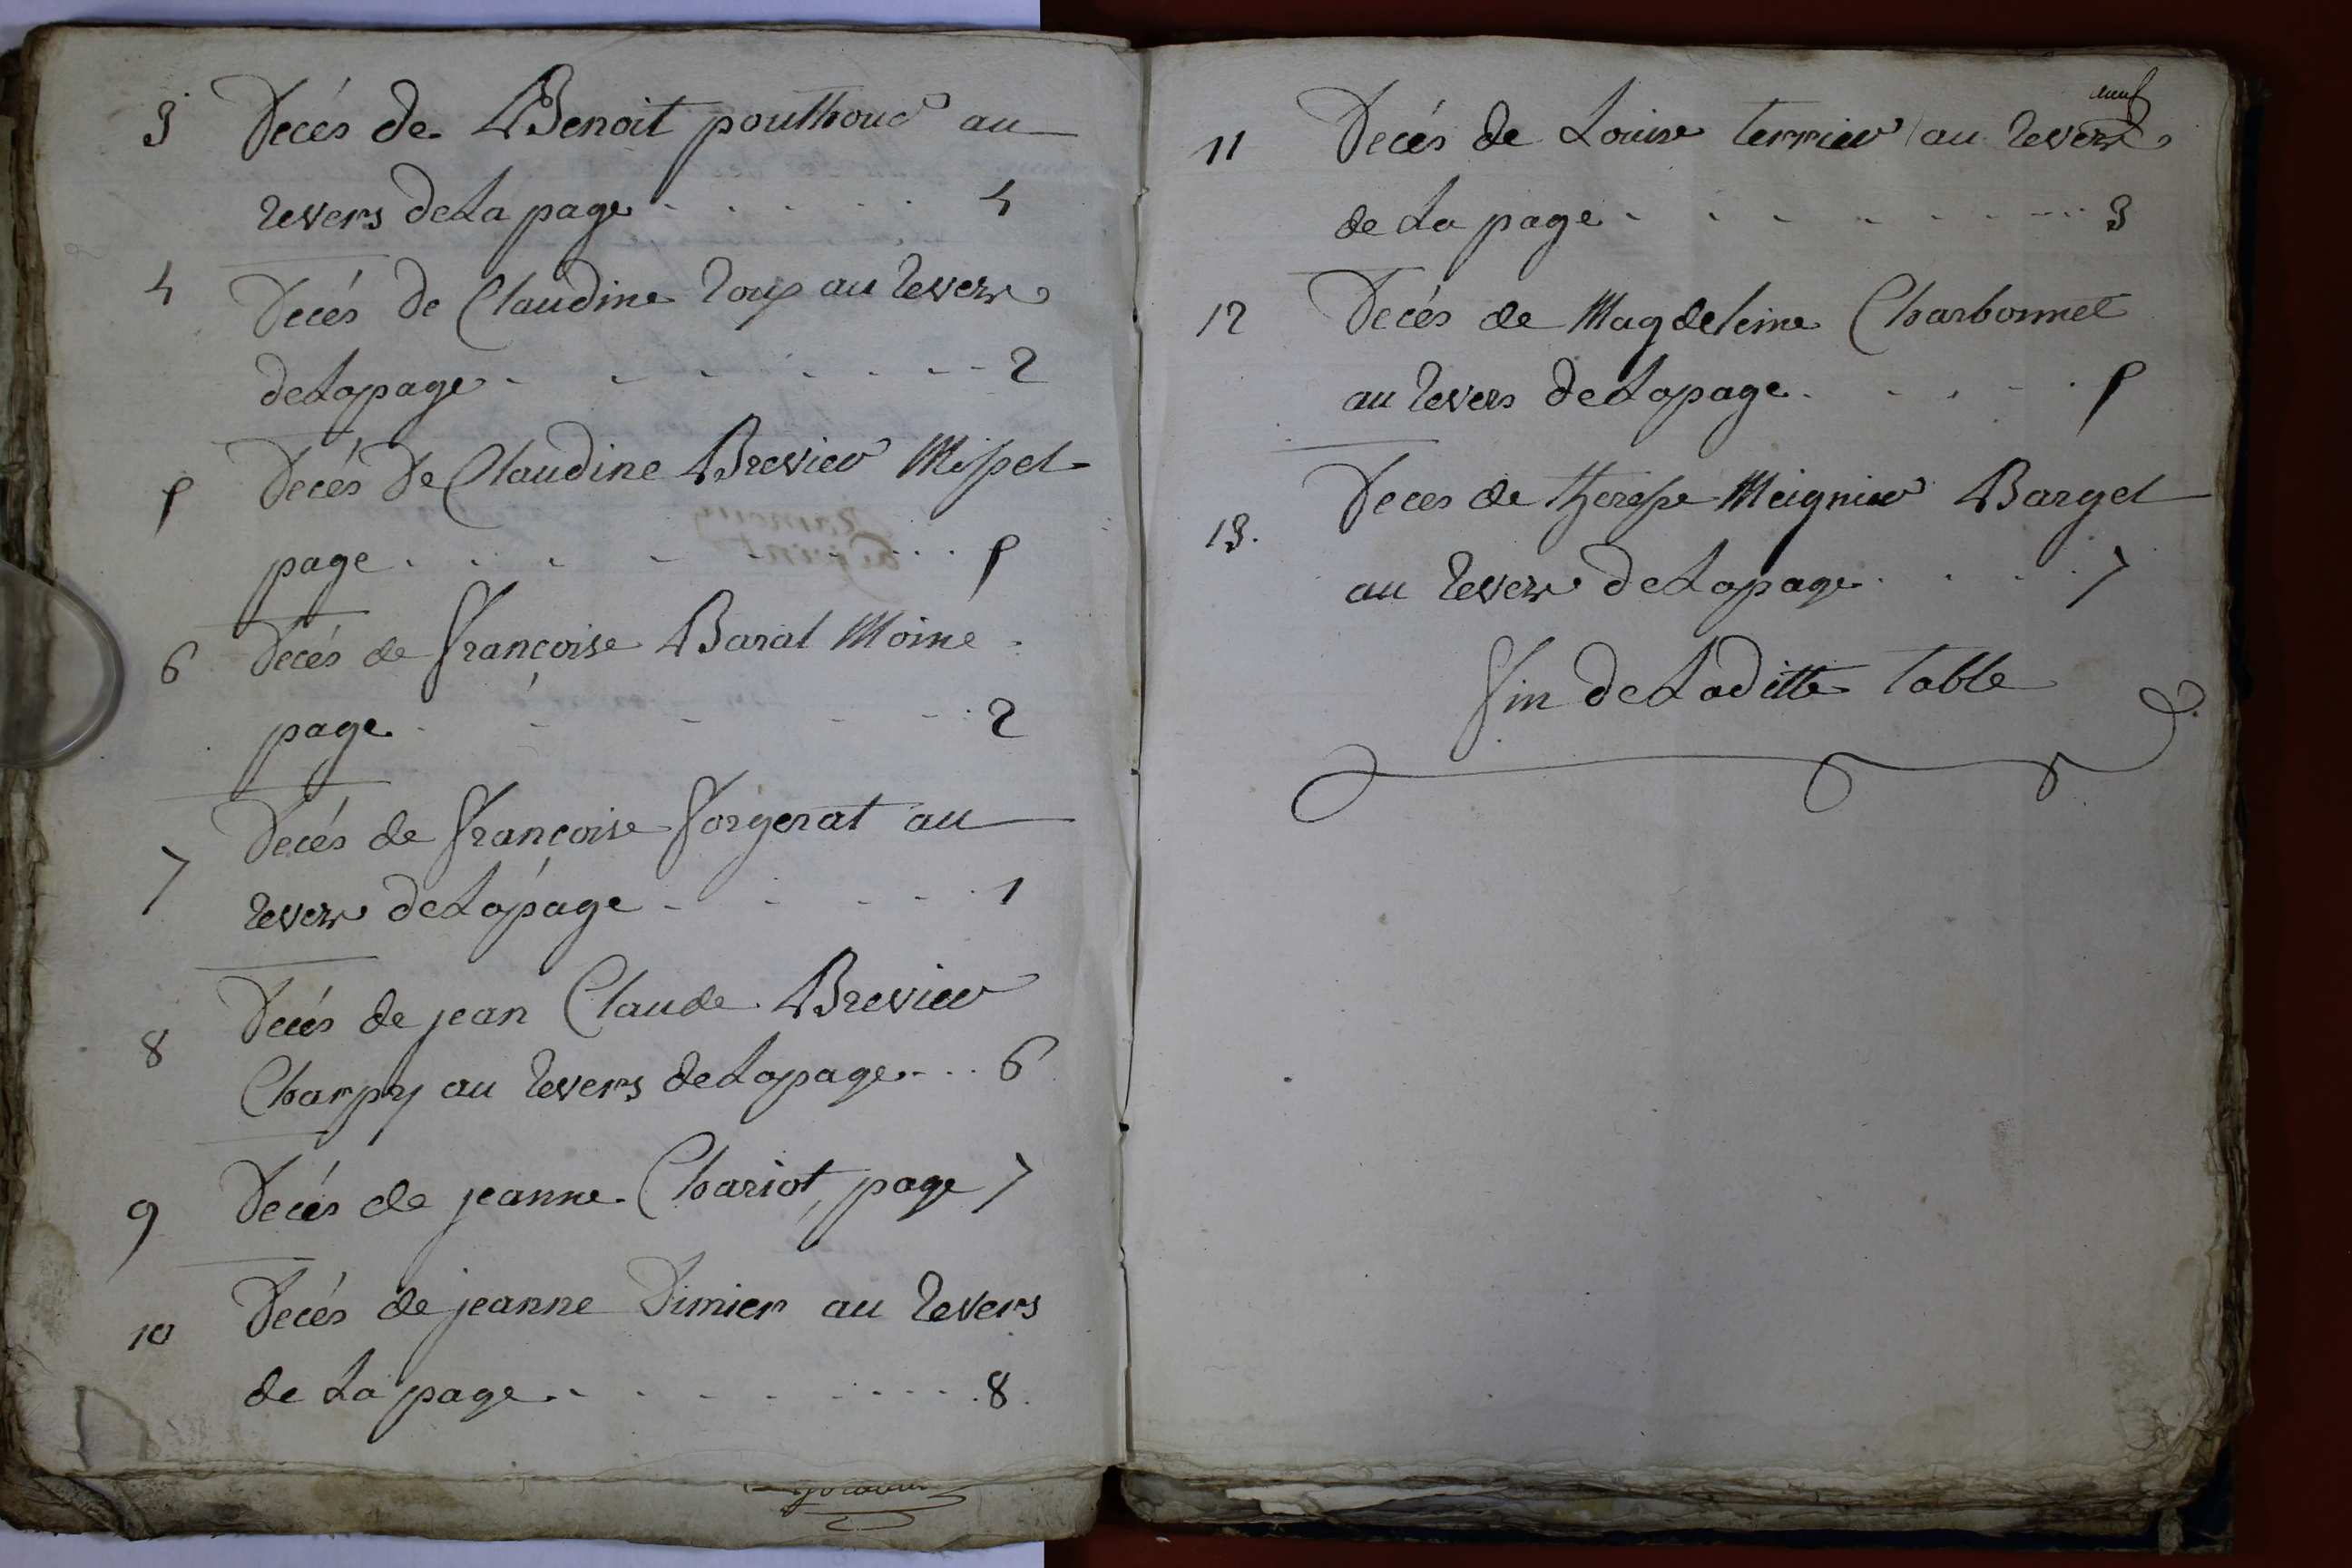 3 Decés de Benoit pouthoud au
revers de La page 4
4 Decés de Claudine Roux au Revers
de La page 2
5 Decés De Claudine Brevier Mispel
page 5
6 Decés de françoise Barat Moine
page 2
7 Decés de françoise forgerat au
revers de La page 1
8 Decés de jean Claude Brevier
Charpy au Revers de La page 6
9 Decés de jeanne Chariot, page 7
10 Decés de jeanne Dimier au Revers
de La page 8
neuf
11 Decés de Louise terrier au Revers
de La page 3
12 Decés de Magdeleine Charbonnet
au Revers de La page 5
13. Deces de therese Meignier Barget
au Revers de La page 7
fin de La ditte table